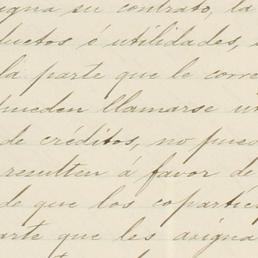 signa su contrato, la
ductos é utilidades,
la parte que le corre
pueden llamarse ut
de créditos, no pues
resulten á favor de
de que los copartíc
arte que les asigna